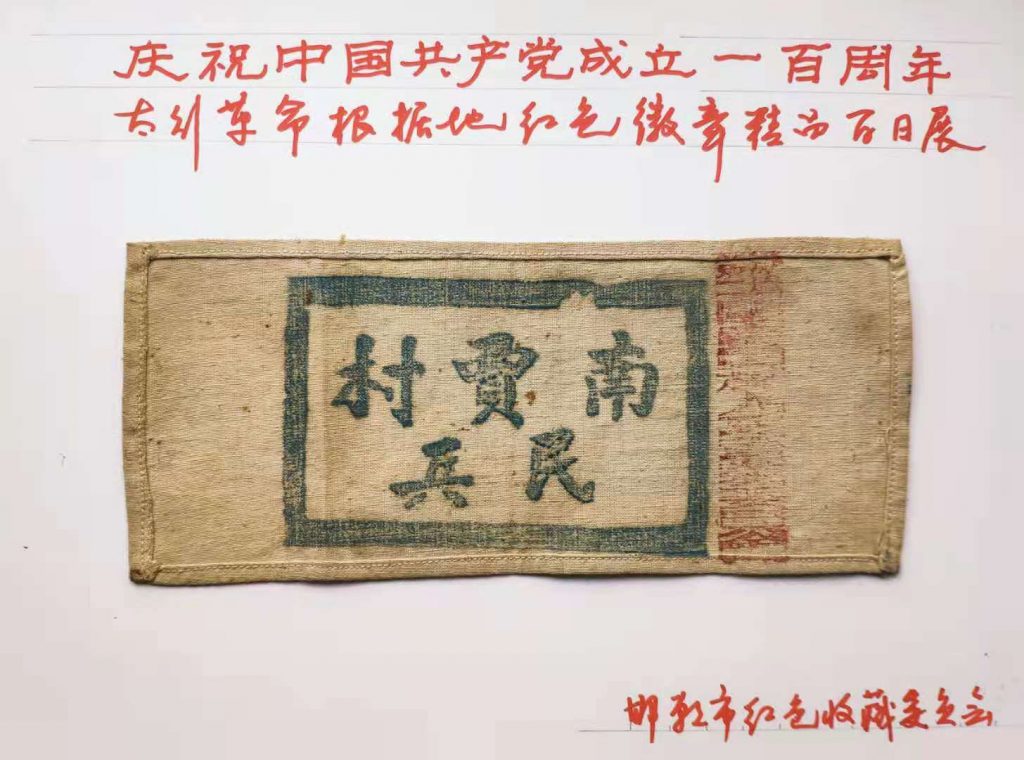 庆祝中国共产党成立一百周年
太行革命根据地红色徽章精品百日展
南賈村
民兵
邯郸市红色收藏委员会